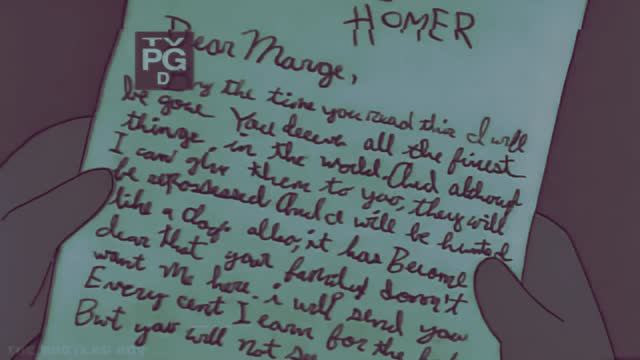 HOMER
TV
PG
D
Dear Marge,
By the time you read this I will
be gone. You deserve all the finest
things in the world. And although
I can give them to you, they will
be repossessed And I will be hunted
like a dog. also, it has Become
clear that your family doesn't
want me here. i will send you
Every cent I earn for the
But you will not see